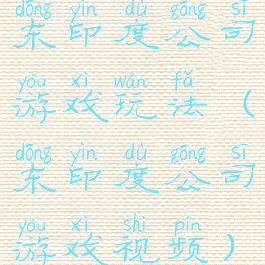 dōng yìn dù gōng sī
东印度公司
yóu xì wán fǎ
游戏玩法（
dōng yìn dù gōng sī
东印度公司
yóu xì shì pín
游戏视频）